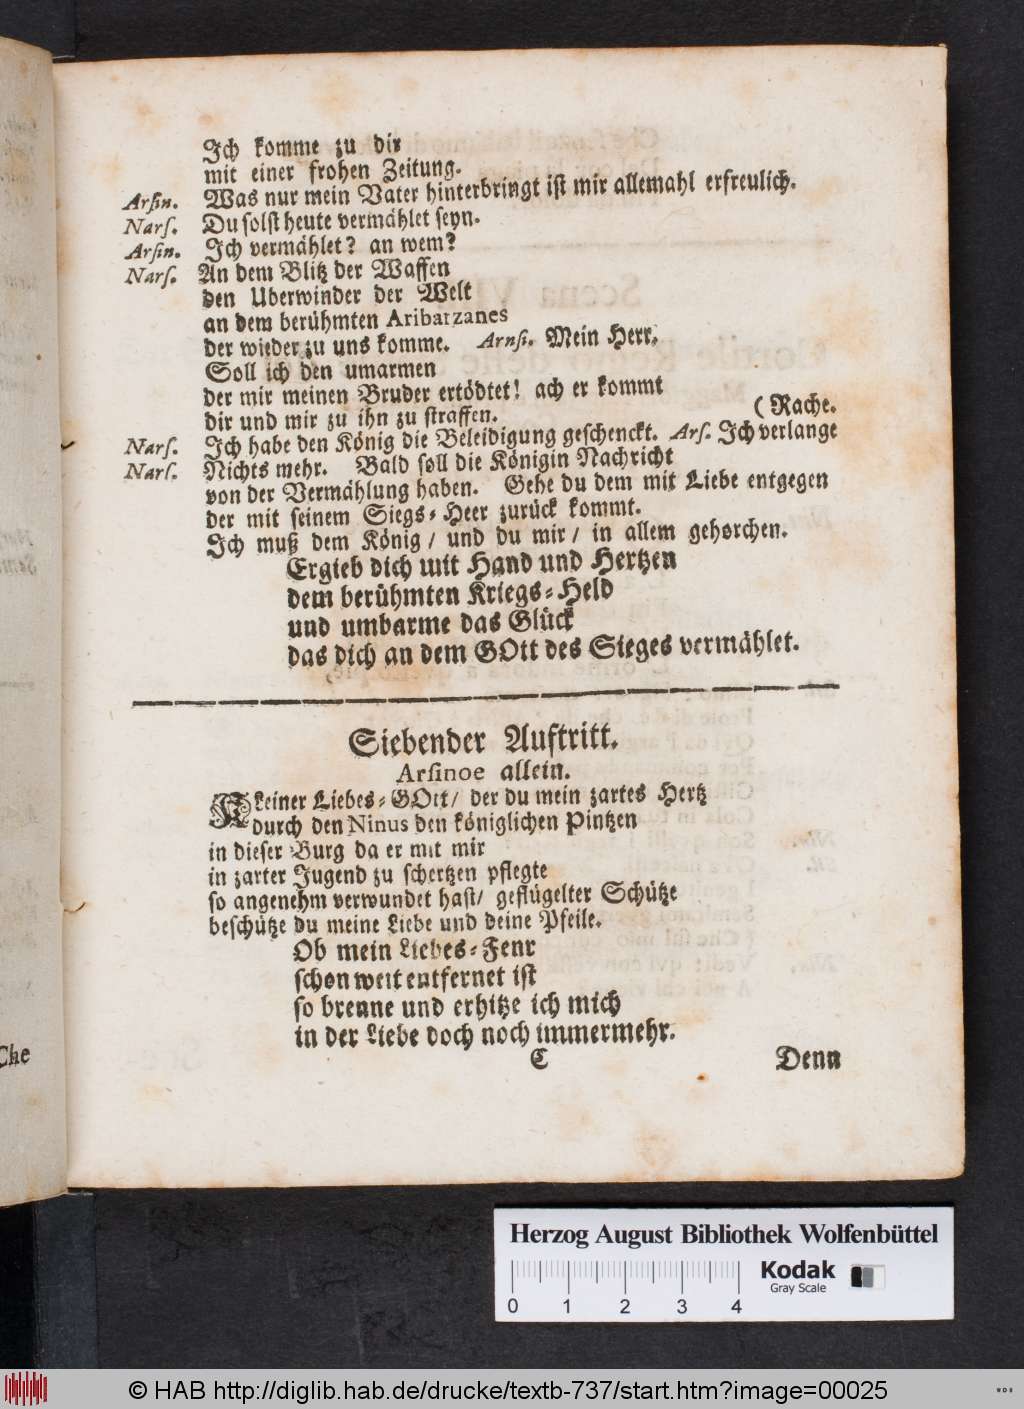 Ich komme zu dir
mit einer frohen Zeitung.
Arsin. Was nur mein Vater hinterbringt ist mir allemahl erfreulich.
Nars. Du solst heute vermählet seyn.
Arsin. Ich vermählet? an wem?
Nars. An dem Blitz der Waffen
den Uberwinder der Welt
an dem berühmten Aribarzanes
der wieder zu uns komme. Arnsi. Mein Herr,
Soll ich den umarmen
der mir meinen Bruder ertödtet! ach er kommt
dir und mir zu ihn zu straffen. (Rache.
Nars. Ich habe den König die Beleidigung geschenckt. Ars. Ich verlange
Nars. Nichts mehr. Bald soll die Königin Nachricht
von der Vermählung haben. Gehe du dem mit Liebe entgegen
der mit seinem Siegs-Heer zurück kommt.
Ich muß dem König / und du mir / in allem gehorchen.
Ergieb dich mit Hand und Hertzen
dem berühmten Kriegs-Held
und umbarme das Glück
das dich an dem GOtt des Sieges vermählet.
Siebender Auftritt.
Arsinoe allein.
Kleiner Liebes-GOtt / der du mein zartes Hertz
durch den Ninus den königlichen Pintzen
in dieser Burg da er mit mir
in zarter Jugend zu schertzen pflegte
so angenehm verwundet hast / geflügelter Schütze
beschütze du meine Liebe und deine Pfeile.
Ob mein Liebes-Feur
schon weit entfernet ist
so brenne und erhitze ich mich
in der Liebe doch noch immermehr.
C Denn
Che
Herzog August Bibliothek Wolfenbüttel
Kodak
Gray Scale
0 1 2 3 4
© HAB http://diglib.hab.de/drucke/textb-737/start.htm?image=00025